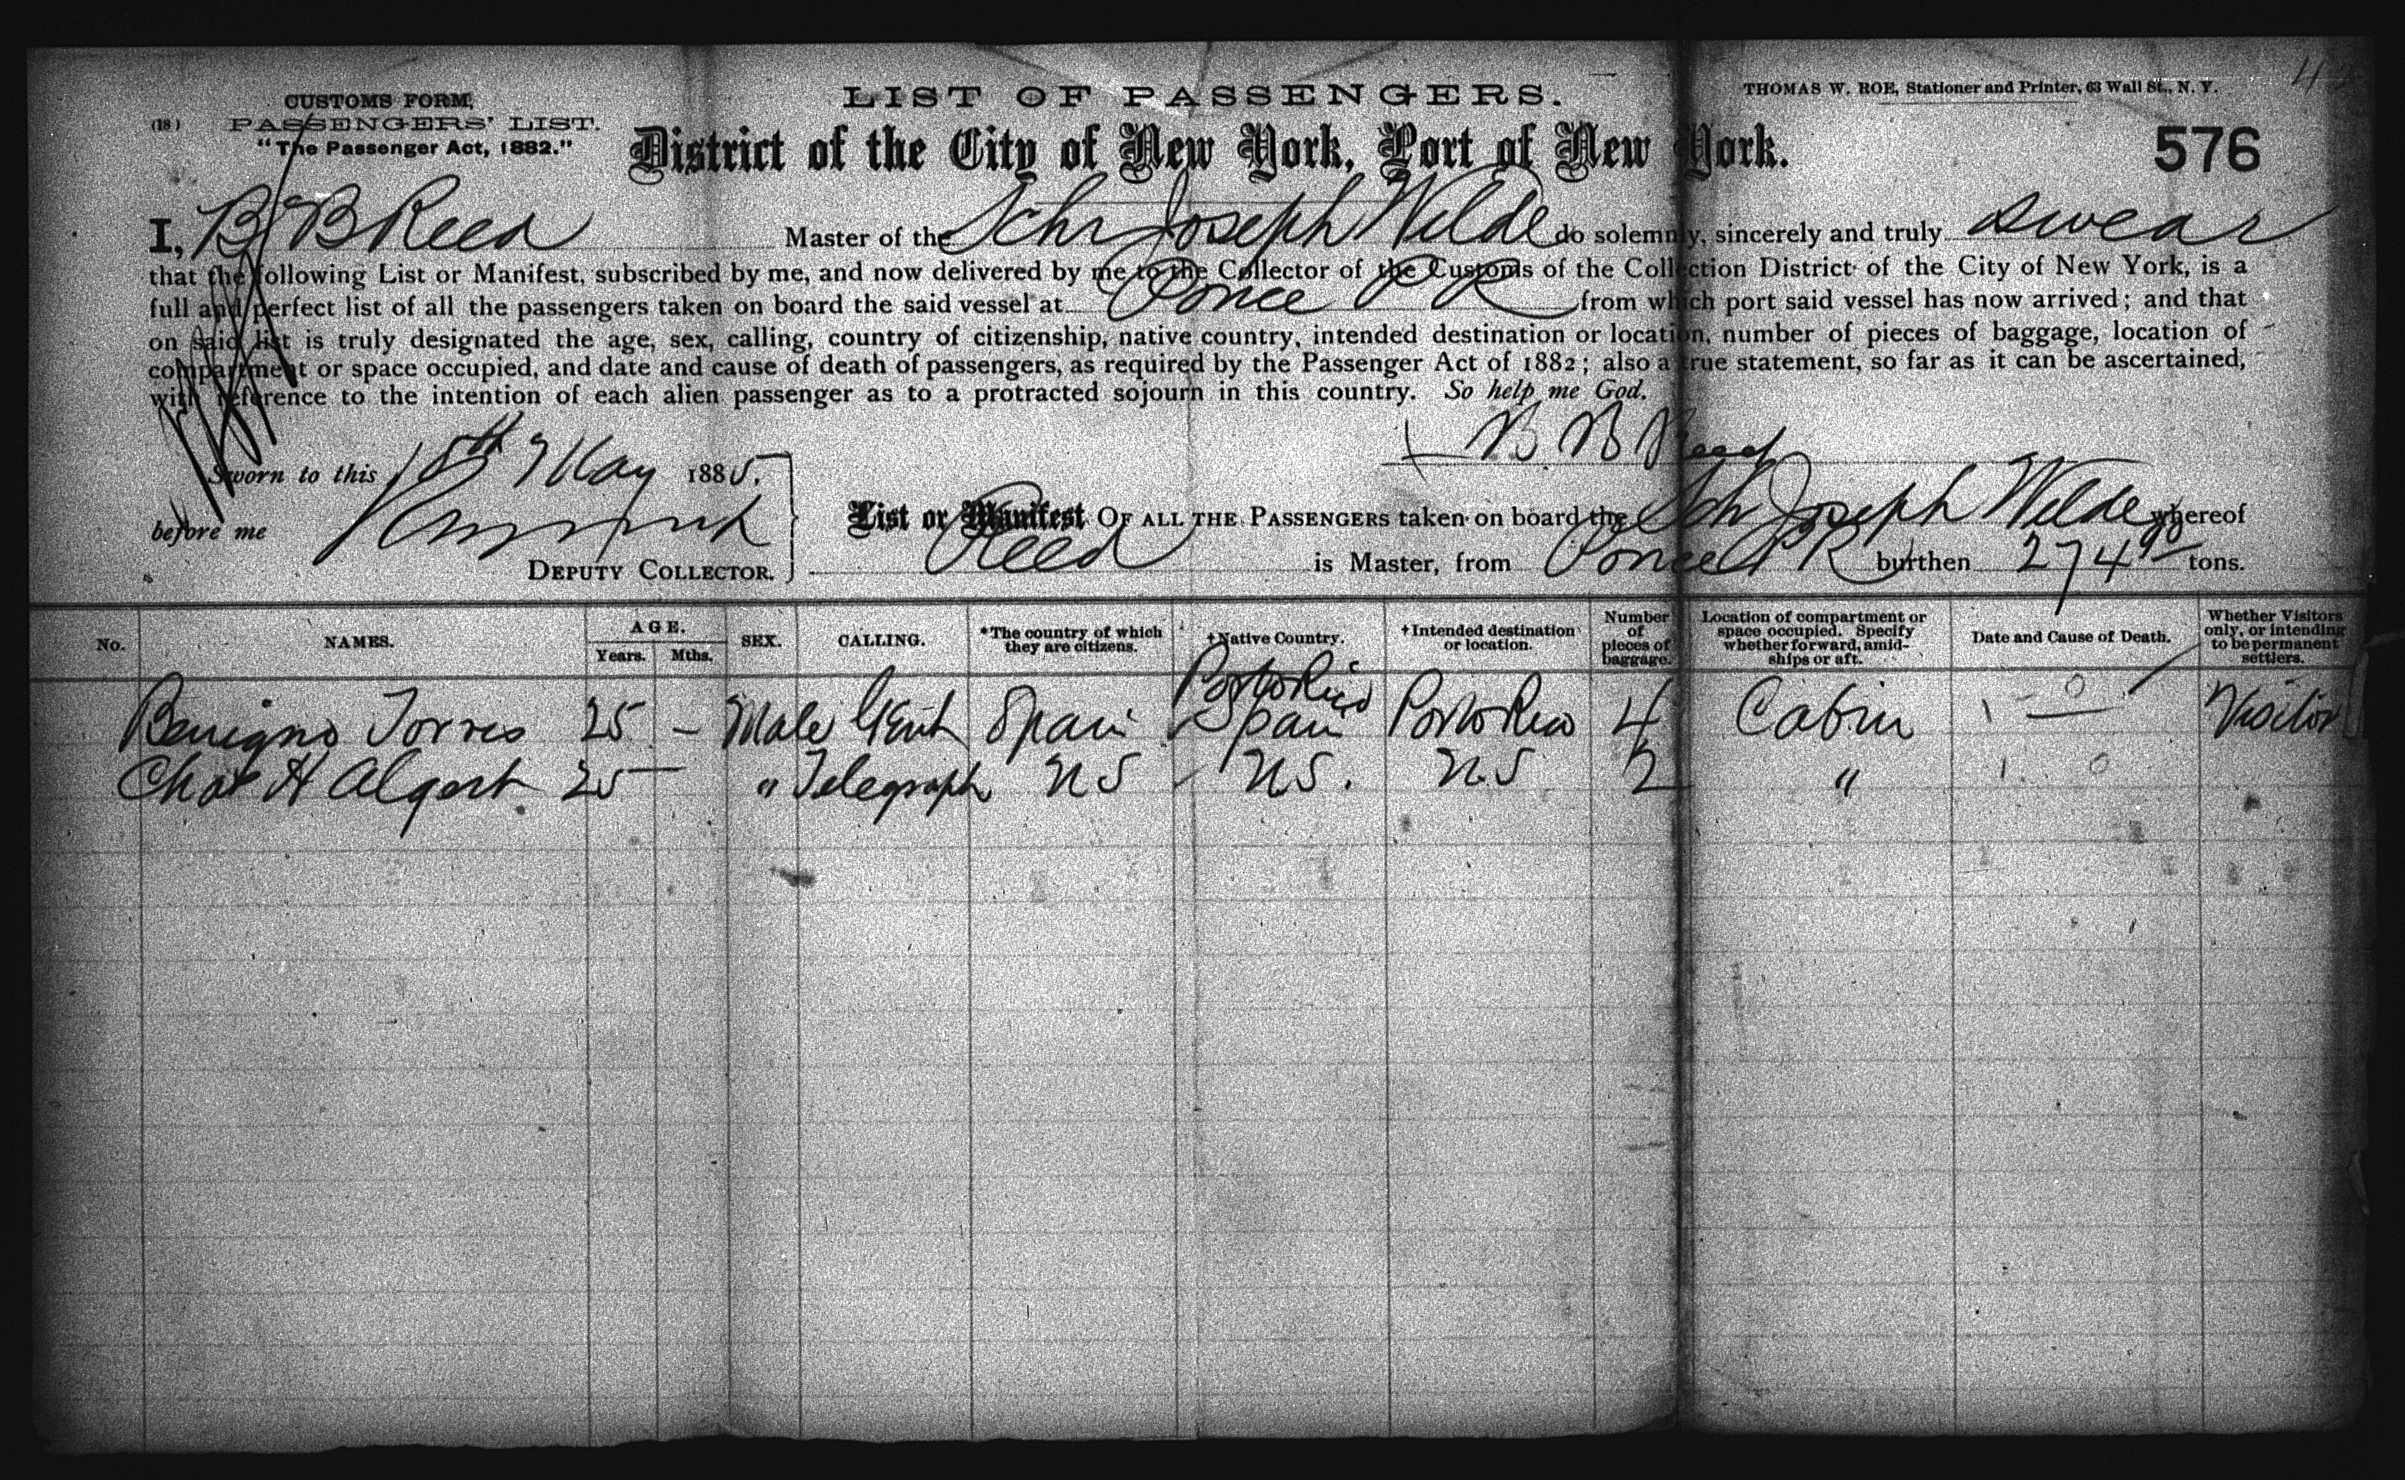 CUSTOMS FORM,
(18) PASSENGERS' LIST.
"The Passenger Act, 1882."
LIST OF PASSENGERS.
THOMAS W. ROE, Stationer and Printer, 63 Wall St., N. Y.
District of the City of New York, Port of New York.
576
I, B B Reed Master of the Schr Joseph Wilde do solemnly, sincerely and truly swear
that the following List or Manifest, subscribed by me, and now delivered by me to the Collector of the Customs of the Collection District of the City of New York, is a
full and perfect list of all the passengers taken on board the said vessel at Ponce P R from which port said vessel has now arrived; and that
on said list is truly designated the age, sex, calling, country of citizenship, native country, intended destination or location, number of pieces of baggage, location of
compartment or space occupied, and date and cause of death of passengers, as required by the Passenger Act of 1882; also a true statement, so far as it can be ascertained,
with reference to the intention of each alien passenger as to a protracted sojourn in this country. So help me God.
B B Reed
Sworn to this 18th May 1885.
before me
DEPUTY COLLECTOR.
List or Manifest OF ALL THE PASSENGERS taken on board the Sch Joseph Wilde whereof
Reed is Master, from Ponce P R burthen 274 90 tons.
No. NAMES. AGE. Years. Mths. SEX. CALLING. *The country of which they are citizens. †Native Country. †Intended destination or location. Number of pieces of baggage. Location of compartment or space occupied. Specify whether forward, amidships or aft. Date and Cause of Death. Whether Visitors only, or intending to be permanent settlers.
Porto Rico
Benigno Torres 25 - Male Gent Spain Spain Porto Rico 4 Cabin 0 Visitor
Chas H Algert 25 — " Telegraph US US. US 2 " 0